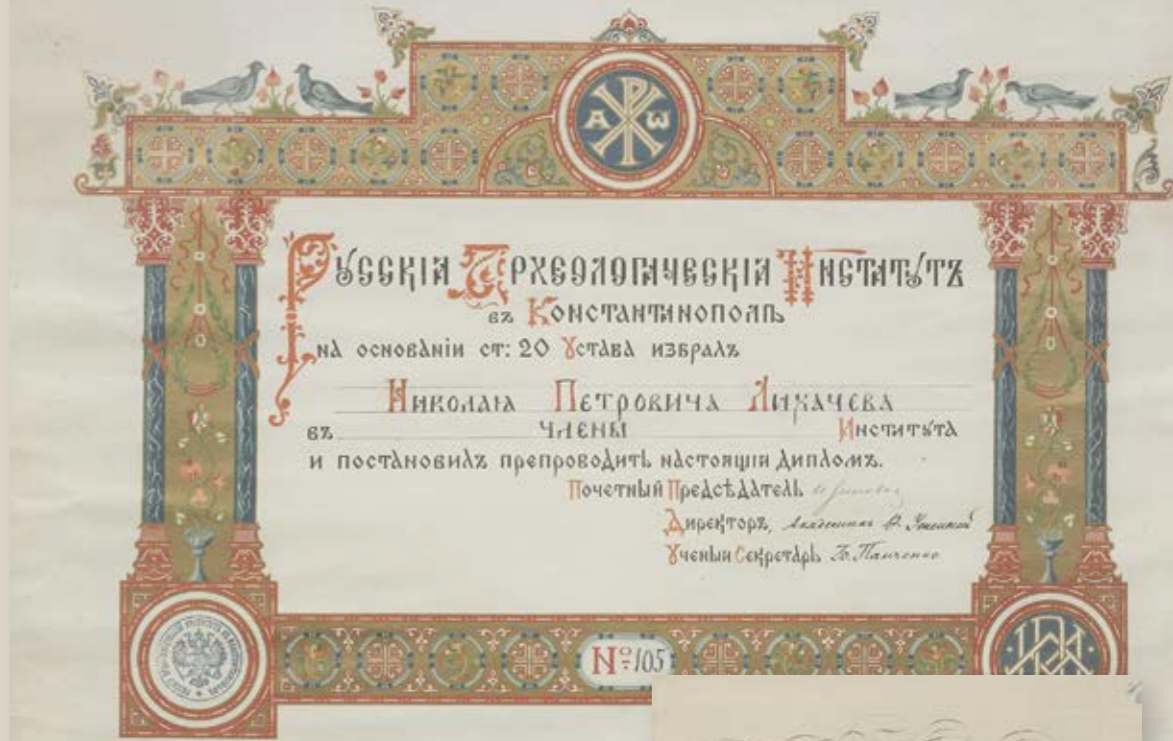 А Ѡ
Русскій Археологическій Институтъ
въ Константинополѣ
на основаніи ст: 20 Устава избралъ
Николая Петровича Лихачева
въ члены Института
и постановилъ препроводить настоящій дипломъ.
Почетный Предсѣдатель
Директоръ, Академикъ Ѳ. Успенскій
Ученый Секретарь Б. Панченко
№ 105